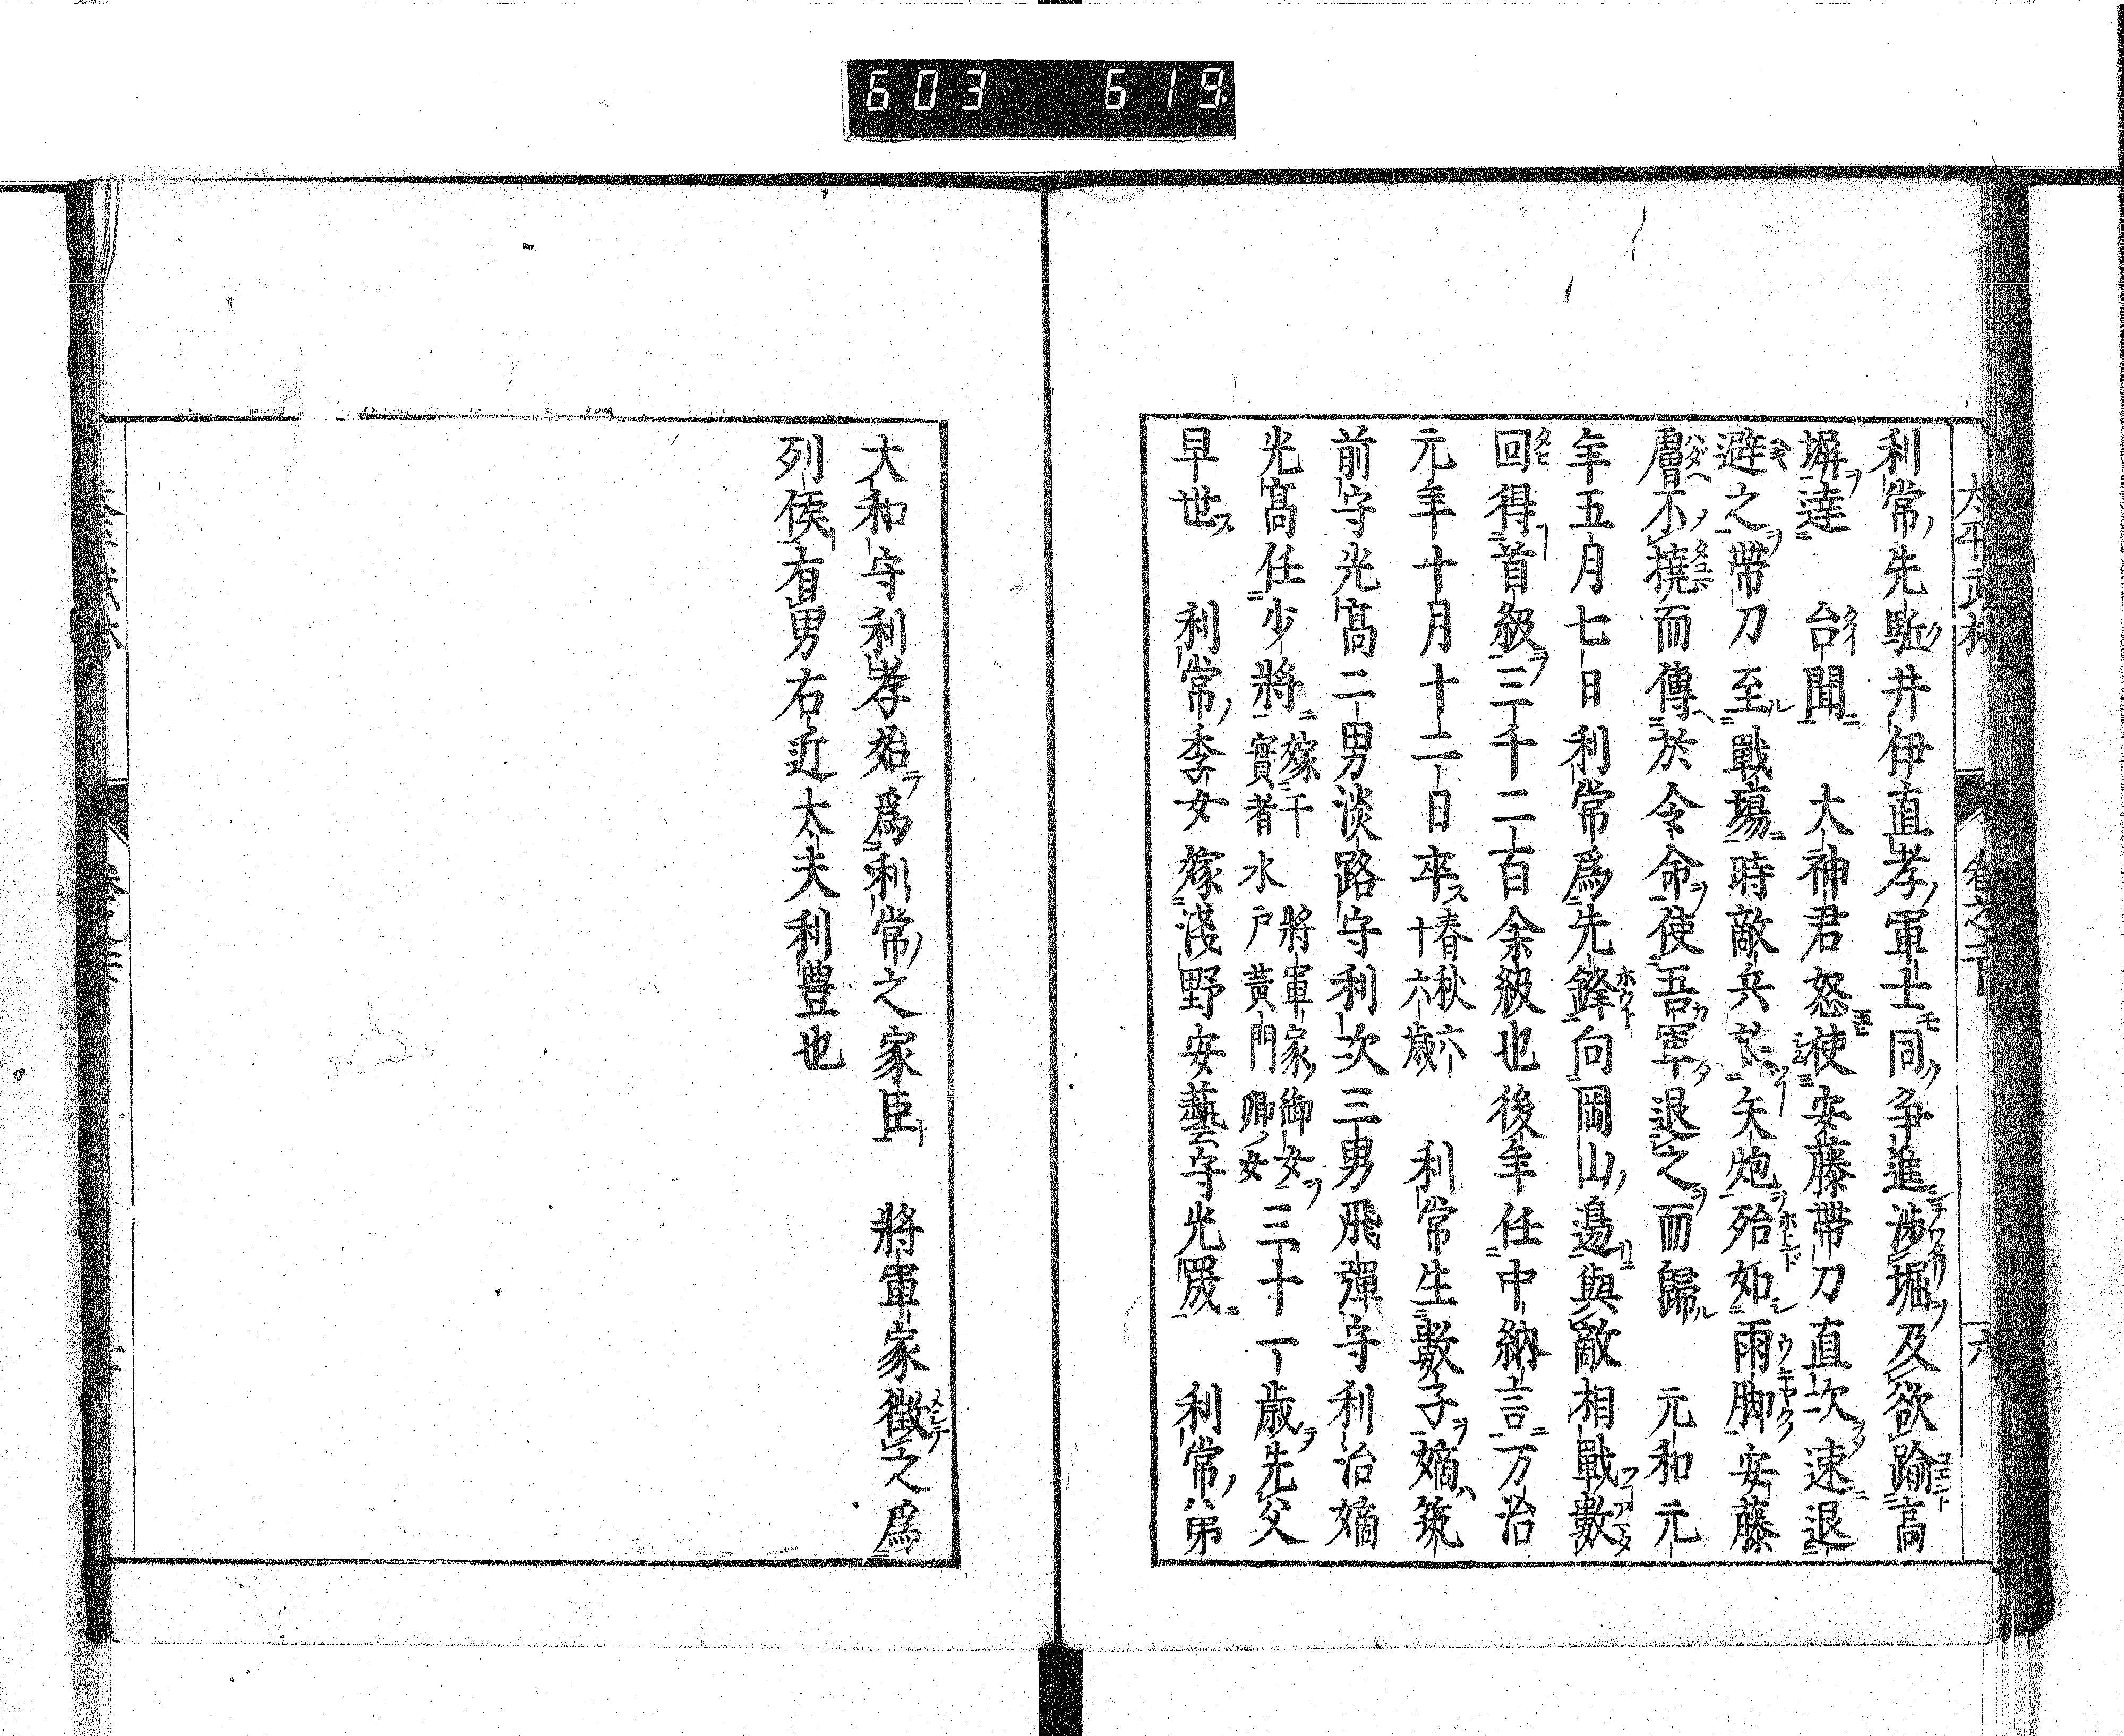 603 619.
利常先駈井伊直孝軍士同争進渉堀及欲踰高
塀達 台聞 大神君怒使安藤帯刀直次速退
避之帯刀至戰塲時敵兵矢炮殆如雨脚安藤
膚不撓而傳於令命使吾軍退之而歸 元和元
年五月七日利常爲先鋒向岡山邊與敵相戰數
回得首級三千二百余級也後年任中納言万治
元年十月十二日卒春秋六十六歳 利常生數子嫡筑
前守光高二男淡路守利次三男飛彈守利治嫡
光高任少將嫁于將軍家御女實者水戸黄門卿女三十一歳先父
早世 利常季女嫁淺野安藝守光晟 利常弟
大和守利孝始爲利常之家臣 將軍家徴之爲
列侯有男右近太夫利豊也